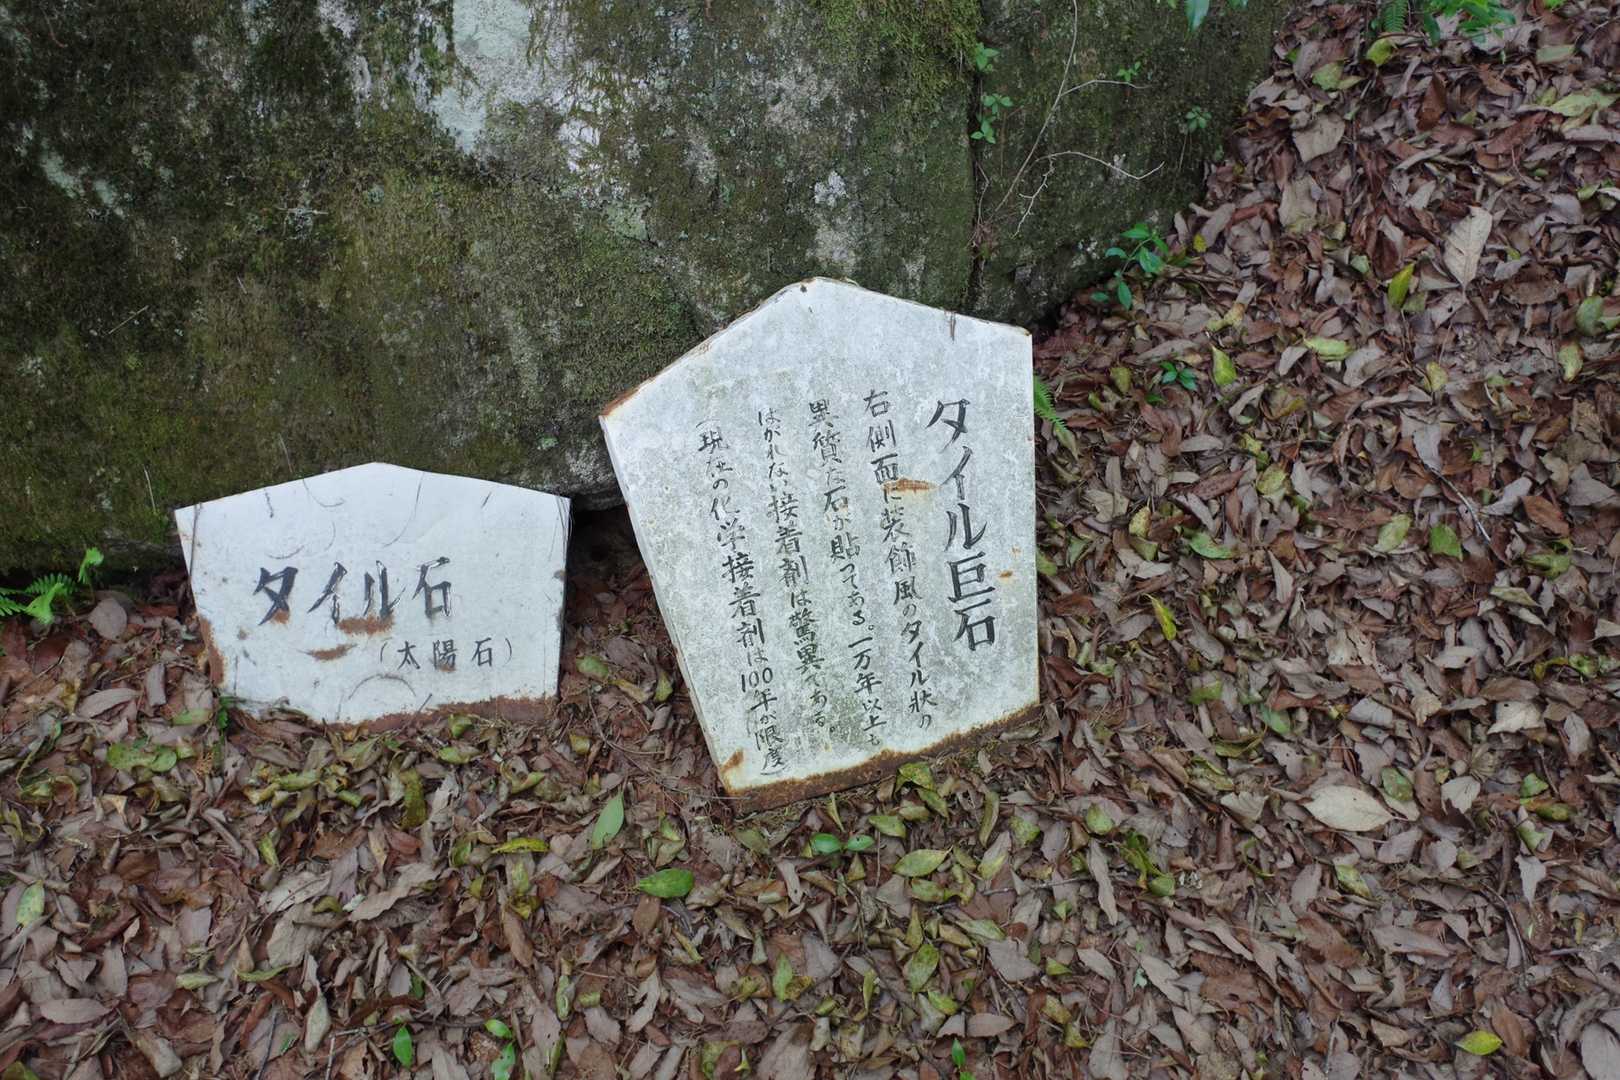 タイル石
（太陽石）
タイル巨石
右側面に装飾風のタイル状の
異質な石が貼ってある。一万年以上も
はがれない接着剤は驚異である。
（現在の化学接着剤は100年が限度）